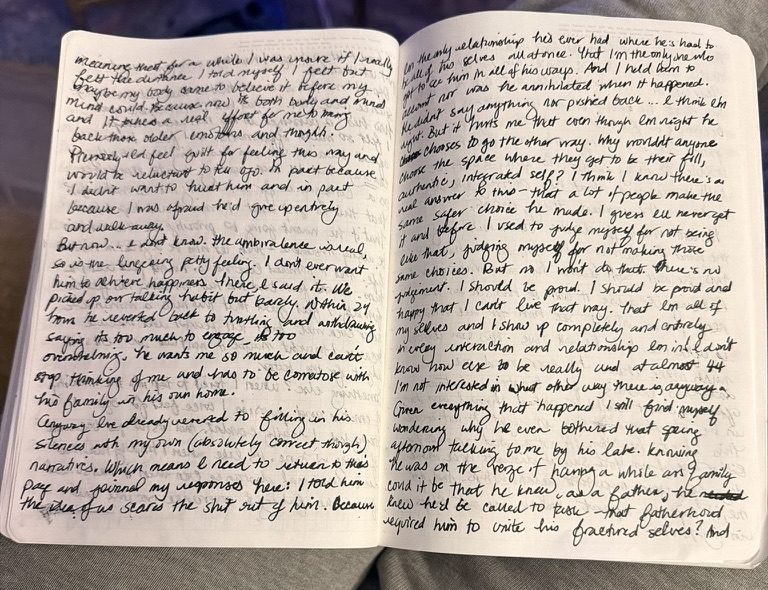 meaning that for a while I was unsure if I really
felt the distance I told myself I felt but
maybe my body came to believe it before my
mind could. Because now it's both body and mind
and it takes a real effort for me to bring
back those older emotions and though.
Previously I'd feel guilt for feeling this way and
would be reluctant to tell him. In part because
I didn't want to hurt him and in part
because I was afraid he'd give up entirely
and walk away.
But now... I don't know. The ambivalence is real,
so is the lingering petty feeling. I don't ever want
him to achieve happiness. There, I said it. We
picked up our talking habit but barely. Within 24
hours he reverted back to and withdrawing
saying it's too much to engage, it's too
overwhelming. he wants me so much and can't
stop thinking of me and has to be comatose with
his family in his own home.
Anyway I've already veered to filling in his
silences with my own (absolutely correct though)
narratives. Which means I need to return to this
page and journal my responses here: I told him
the idea of us scares the shit out of him. Because
I'm the only relationship he's ever had where he's had to
be all of his selves all at once. That I'm the only one who
got to see him in all of his ways. And I held him to
nor was he annihilated when it happened.
He didn't say anything nor pushed back... I think I'm
right. But it hurts me that even though I'm right he
chooses to go the other way. Why wouldn't anyone
choose the space where they get to be their full,
authentic, integrated self? I think I know there's a
real answer to this - that a lot of people make the
same safer choice he made. I guess I'll never get
it and before I used to judge myself for not being
like that, judging myself for not making those
same choices. But no I won't do that. There's no
judgement. I should be proud. I should be proud and
happy that I can't live that way. That I'm all of
my selves and I show up completely and entirely
in every interaction and relationship I'm in. I don't
know how else to be really and at almost 44
I'm not interested in what other way there is anyway.
Given everything that happened I still find myself
wondering why he even bothered that spring
afternoon talking to me by his lake. Knowing
he was on the verge of having a whole ass family
could it be that he knew, as a father, he
knew he'd be called to task - that fatherhood
required him to unite his fractured selves? And